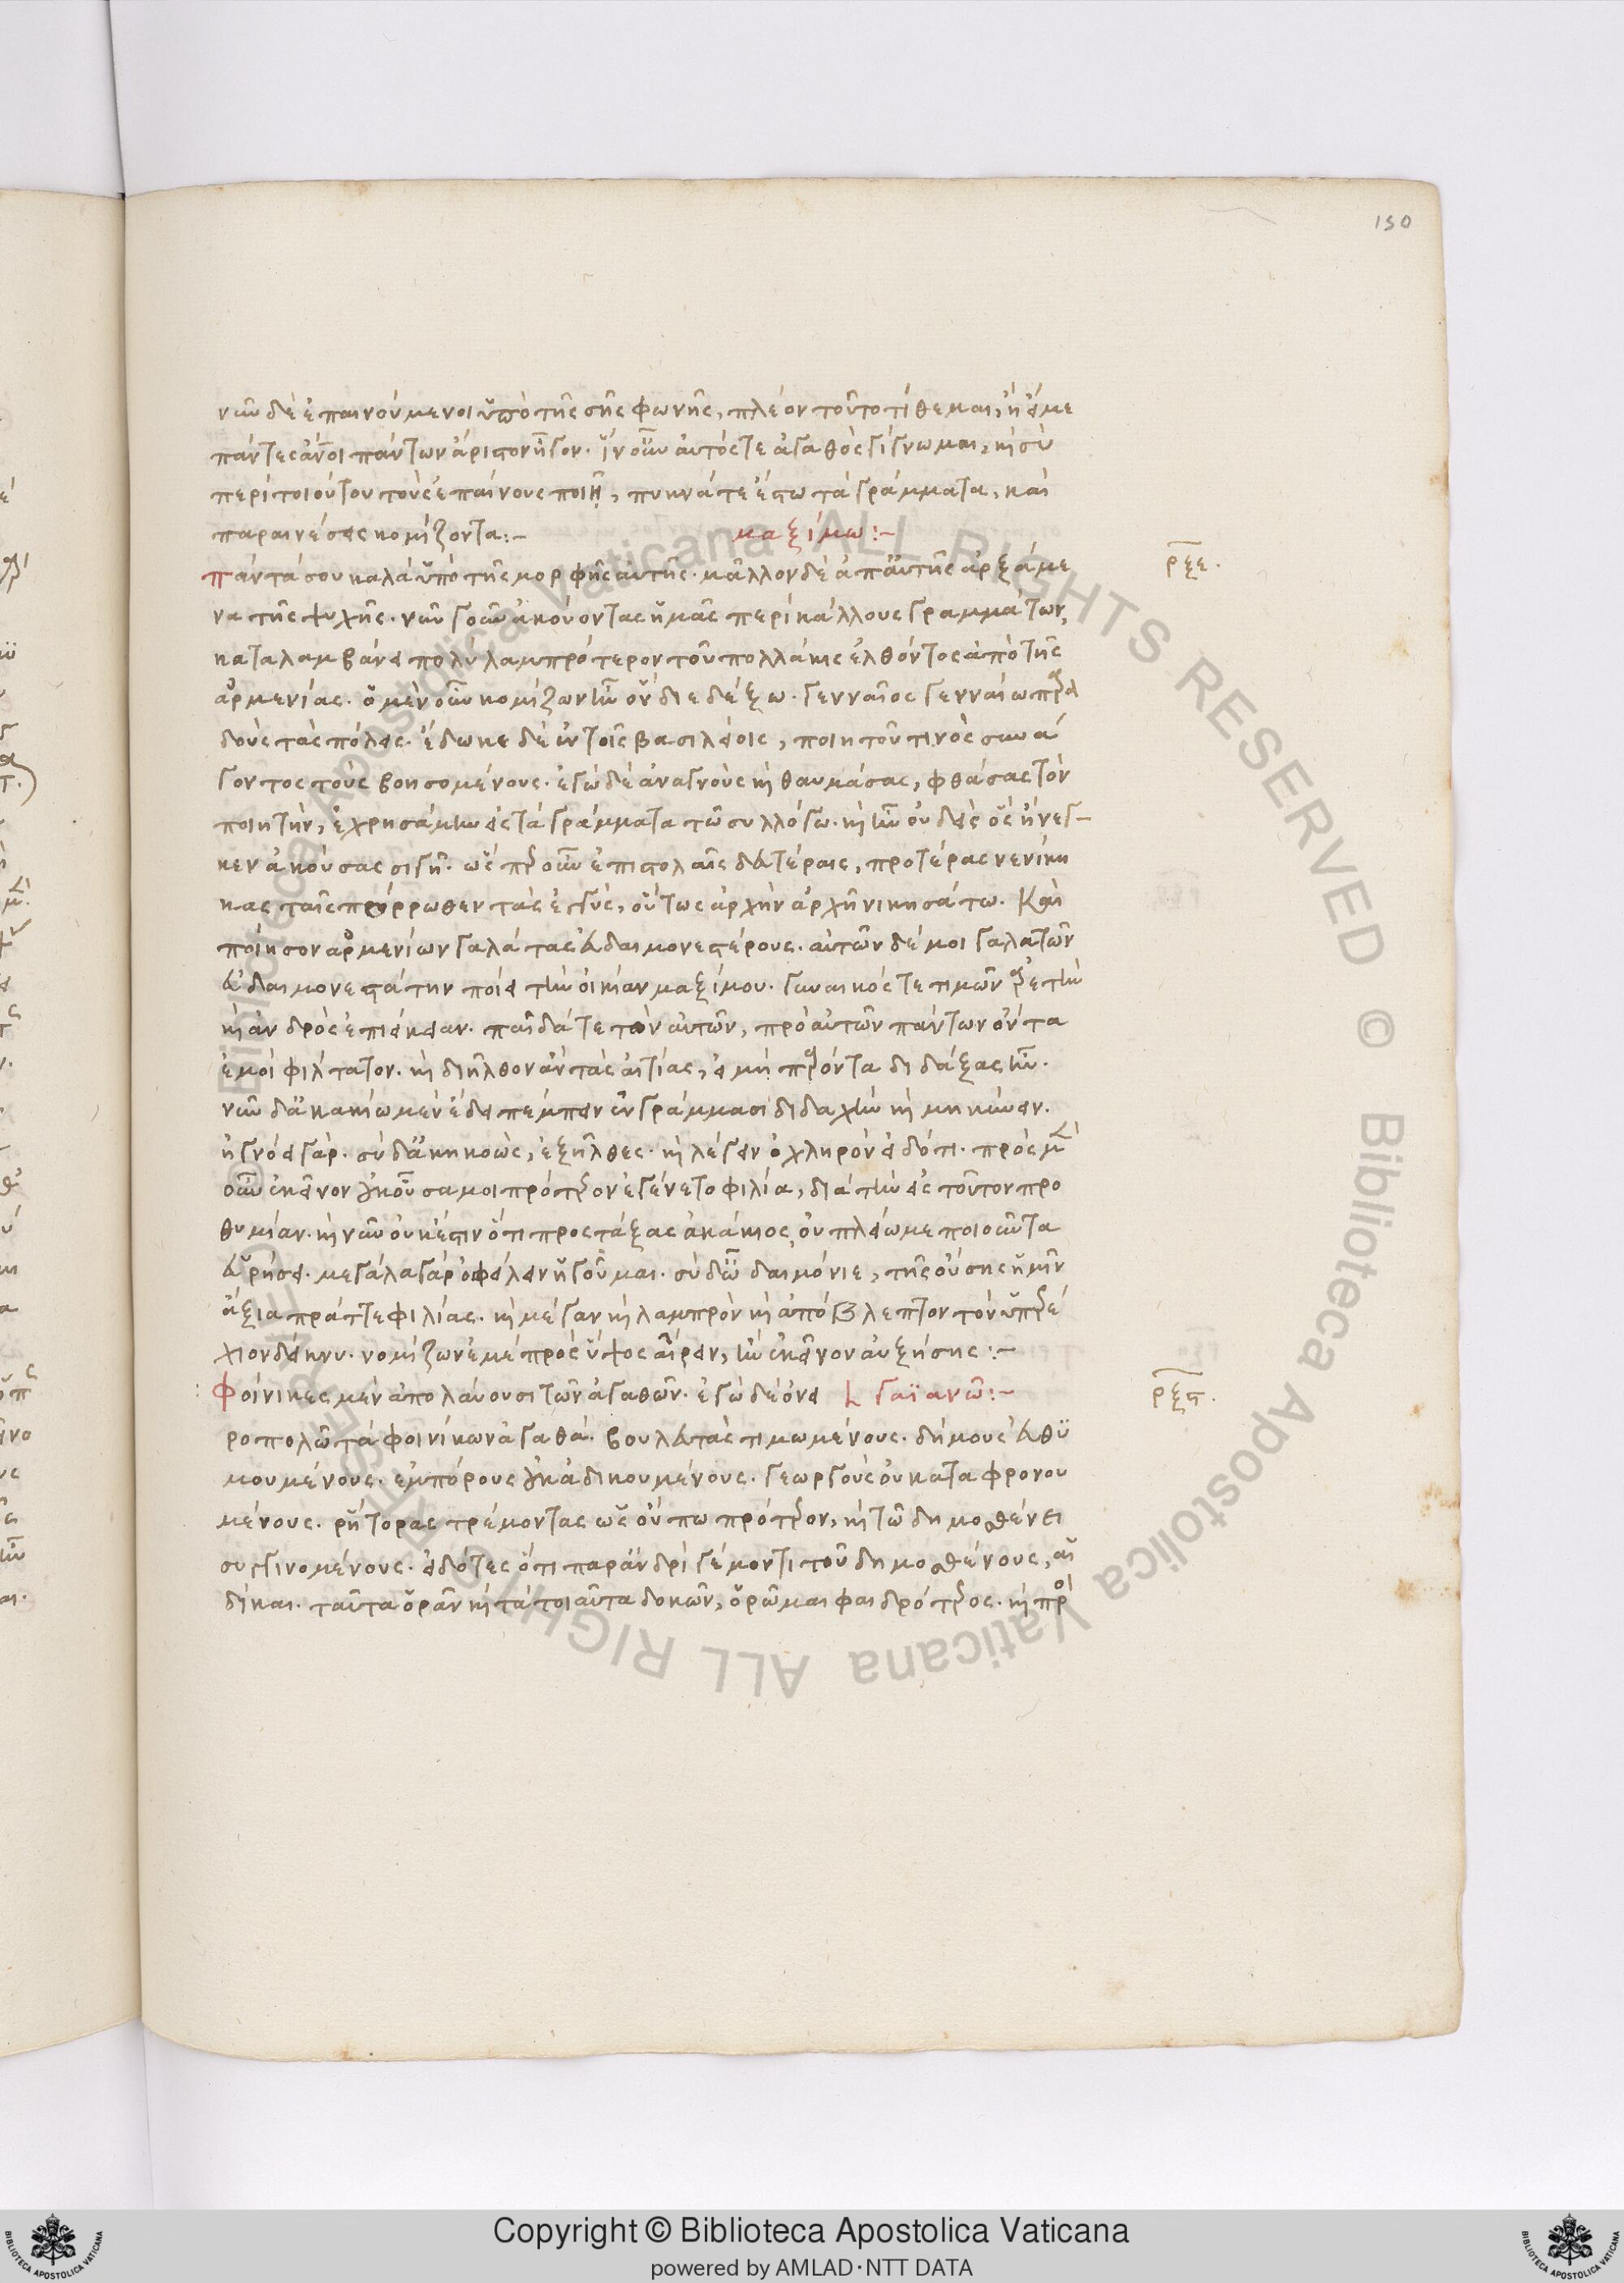 130
νῦν δὲ ἐπαινούμενοι ὑπὸ τῆς σῆς φωνῆς, πλέον τοῦτο τίθεμαι, ἢ εἴ με
πάντες ἄνοι πάντων ἄριστον ἦγον. ἵν οὖν αὐτός τε ἀγαθὸς γίγνωμαι, κ σὺ
περὶ τοιούτου τοὺς ἐπαίνους ποιῇ, πυκνά τε ἔστω τὰ γράμματα, καὶ
παραινέσεις κομίζοντα:- μαξίμω:-
πάντά σου καλὰ ὑπὸ τῆς μορφῆς αὐτῆς. μᾶλλον δὲ ἀπ αὐτῆς ἀρξάμε
ρξε.
να τῆς ψυχῆς. νῦν γοῦν ἀκούοντας ἡμᾶς περὶ κάλλους γραμμάτων,
καταλαμβάνει πολὺ λαμπρότερον τοῦ πολλάκις ἐλθόντος ἀπὸ τῆς
ἀρμενίας. ὁ μὲν οὖν κομίζων ἦν οὗ διεδέξω. γενναῖος γενναίω παραδ
δοὺς τὰς πόλεις. ἔδωκε δὲ ἐν τοῖς βασιλείοις, ποιητοῦ τινὸς συνά
γοντος τοὺς βοησομένους. ἐγὼ δὲ ἀναγνοὺς κ θαυμάσας, φθάσας τὸν
ποιητὴν, ἐχρησάμην εἰς τὰ γράμματα τῶ συλλόγω. κ ἦν οὐδεὶς ὃς ἤνεγ-
κεν ἀκούσας σιγῆ. ὡς περ οὖν ἐπιστολαῖς δευτέραις, προτέρας νενίκη
κας ταῖς πόρρωθεν τὰς ἐγγὺς, οὕτως ἀρχὴν ἀρχῆ νικησάτω. Καὶ
ποίησον ἀρμενίων γαλάτας εὐδαιμονεστέρους. αὐτῶν δέ μοι γαλατῶν
εὐδαιμονεστάτην ποίει τὴν οἰκίαν μαξίμου. γυναικός τε τιμῶν ἀρετὴν
κ ἀνδρὸς ἐπιείκειαν. παῖδά τε τὸν αὐτῶν, πρὸ αὐτῶν πάντων ὄντα
ἐμοὶ φίλτατον. κ διῆλθον ἂν τὰς αἰτίας, εἰ μὴ παρόντα διδάξας ἦν.
νῦν δ ἀκηκοὼς μὲν ἔδει πέμπειν ἐν γράμμασι διδαχὴν κ μηκύνειν.
ἠγνόει γάρ. σὺ δ ἀκηκοὼς, ἐξῆλθες. κ λέγειν ὀχληρὸν εἰδότι. πρὸς μὲν
οὖν ἐκεῖνον ἑκοῦσα μοι πρότερον ἐγένετο φιλία, διὰ τὴν εἰς τοῦτον προ
θυμίαν. κ νῦν οὐκ ἔστιν ὅτι προστάξας ἀκάκιος, οὐ πλείω με ποιοῦντα
εὑρήσει. μεγάλα γὰρ ὀφείλειν ἡγοῦμαι. σὺ δ ὦ δαιμόνιε, τῆς οὔσης ἡμῖν
ἄξια πρᾶττε φιλίας. κ μέγαν κ λαμπρὸν κ ἀπόβλεπτον τὸν ὑπερέ
χιον δείκνυ. νομίζων ἐμὲ πρὸς ὕψος αἴρειν, ἢν ἐκεῖνον αὐξήσης:-
Φοίνικες μὲν ἀπολαύουσι τῶν ἀγαθῶν. ἐγὼ δὲ ὀνει γαϊανῶ:-
ρξϛ.
ροπολῶ τὰ φοινίκων ἀγαθά. βουλευτὰς τιμωμένους. δήμους εὐθυ
μουμένους. ἐμπόρους οὐκ ἀδικουμένους. γεωργοὺς οὐ καταφρονου
μένους. ῥήτορας τρέμοντας ὡς οὔπω πρότερον, κ τῶ δημοσθένει
συγγινομένους. εἰδότες ὅτι παρ ἀνδρὶ γέμοντι τοῦ δημοσθένους, αἱ
δίκαι. ταῦτα ὁρᾶν κ τὰ τοιαῦτα δοκῶν, ὁρῶμαι φαιδρότερος. κ πρὸ
© Biblioteca Apostolica Vaticana ALL RIGHTS RESERVED © Biblioteca Apostolica Vaticana ALL RIGHTS RESERVED
Copyright © Biblioteca Apostolica Vaticana
powered by AMLAD·NTT DATA
BIBLIOTECA APOSTOLICA VATICANA
BIBLIOTECA APOSTOLICA VATICANA